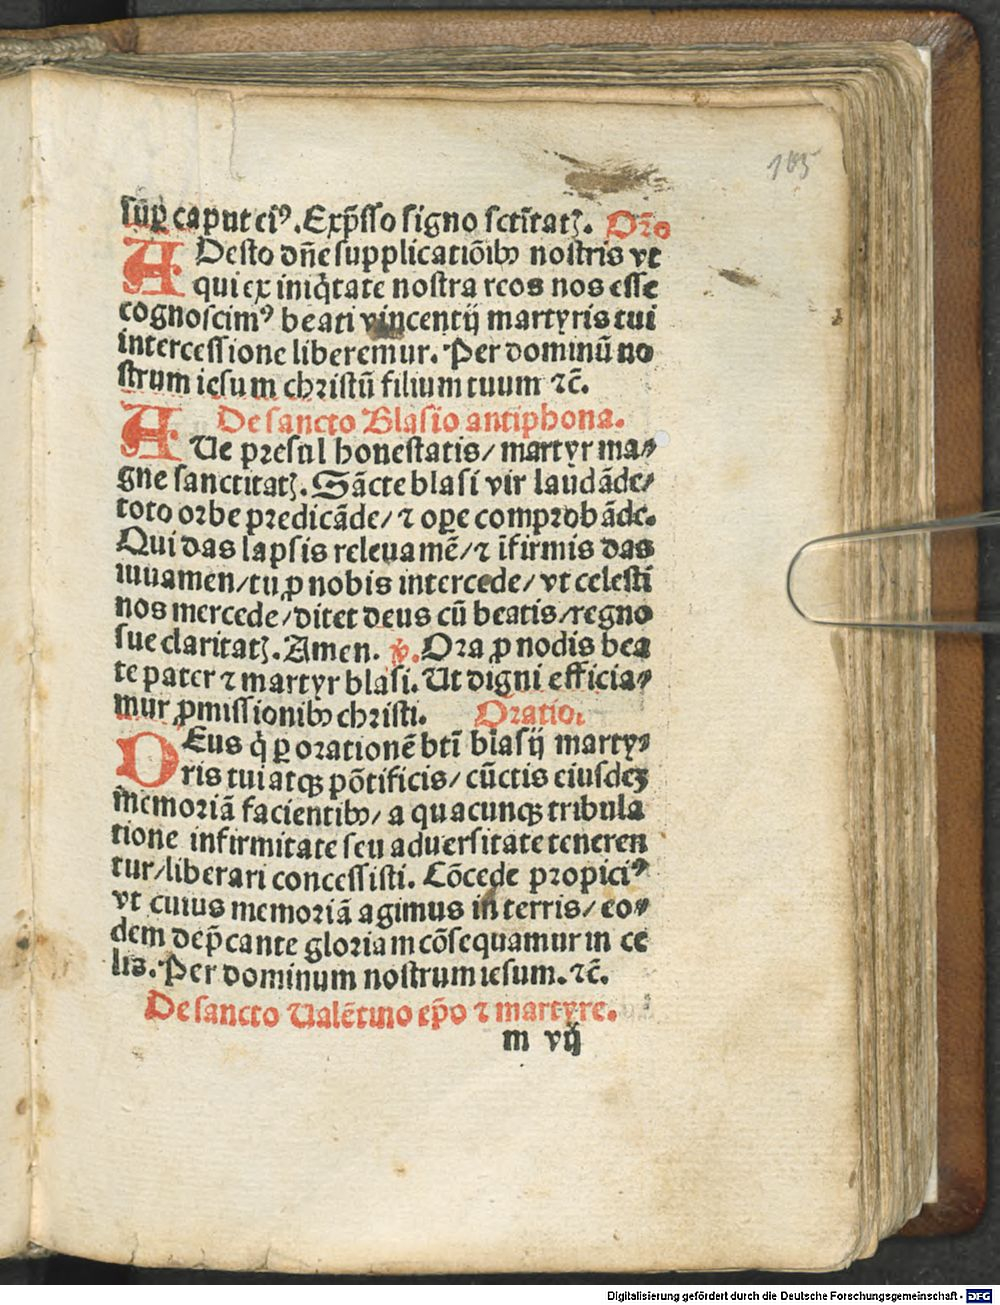 105
sup̄ caput eiꝰ. Exp̄sso signo sctītatꝫ. Oro̅
ADesto dn̄e supplicatiōibꝫ nostris vt
qui ex iniq̄tate nostra reos nos esse
cognoscimꝰ beati vincentij martyris tui
intercessione liberemur. Per dominū no
strum iesum christū filium tuum ⁊c̄.
De sancto Blasio antiphona.
AUe presul honestatis/ martyr ma⸗
gne sanctitatꝫ. Sācte blasi vir laudāde/
toto orbe predicāde/ ⁊ oꝑe comprobāde.
Qui das lapsis releuamē/ ⁊ īfirmis das
iuuamen/ tu ꝓ nobis intercede/ vt celesti
nos mercede/ ditet deus cū beatis/ regno
sue claritatꝫ. Amen. ℣. Ora ꝓ nodis bea
te pater ⁊ martyr blasi. Ut digni efficia⸗
mur ꝓmissionibꝫ christi. Oratio.
DEus q̄ ꝑ orationē bti̅ blasij marty⸗
ris tui atqꝫ pōtificis/ cūctis eiusdeꝫ
memoriā facientibꝫ/ a quacunqꝫ tribula
tione infirmitate seu aduersitate teneren
tur/ liberari concessisti. Cōcede propiciꝰ
vt cuius memoriā agimus in terris/ eo⸗
dem dep̄cante gloriam cōsequamur in ce
lis. Per dominum nostrum iesum. ⁊c̄.
De sancto Ualētino ep̄o ⁊ martyre.
m vij
Digitalisierung gefördert durch die Deutsche Forschungsgemeinschaft - DFG